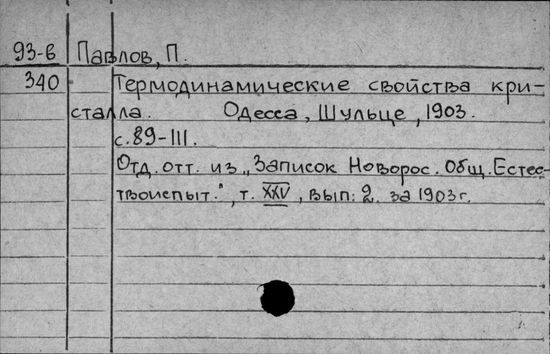 93-6 Павлов, П.
340 Термодинамические свойства кри-
сталла. Одесса, Шульце, 1903.
с. 89-111.
Отд. отт. из „Записок Новорос. Общ. Естес-
твоиспыт.", т. XXV, вып. 2. за 1903 г.